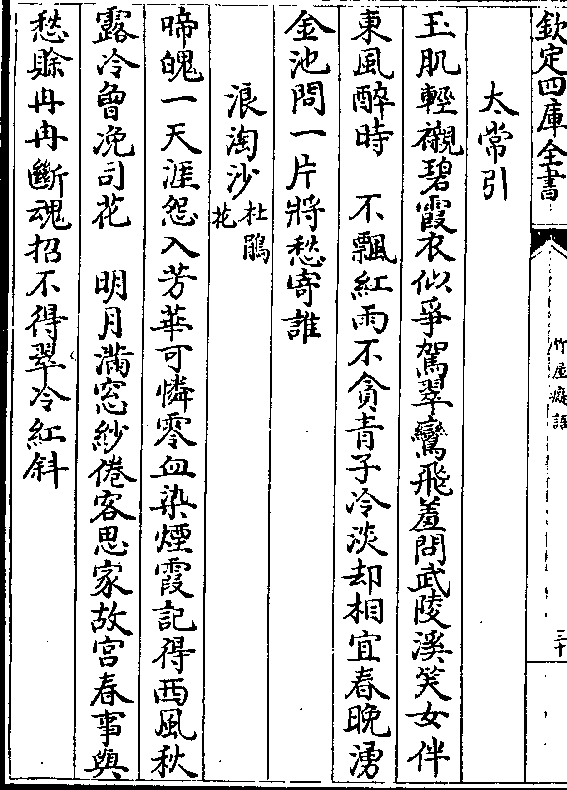 欽定四庫全書
竹屋癡語
三十
太常引
玉肌輕襯碧霞衣似爭駕翠鸞飛羞問武陵溪笑女伴
東風醉時　不飄紅雨不貪青子冷淡却相宜春晚湧
金池問一片將愁寄誰
浪淘沙杜鵑花
啼魄一天涯怨入芳華可憐零血染煙霞記得西風秋
露冷曾凂司花　明月滿窓紗倦客思家故宮春事與
愁賒冉冉斷魂招不得翠冷紅斜